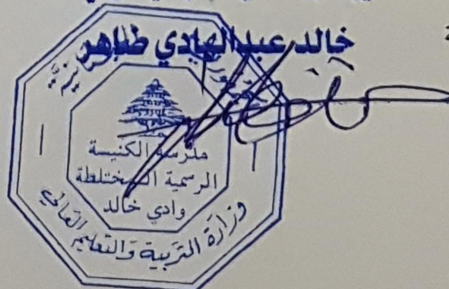 خالد عبد الهادي طاهر
مدرسة الكنيسة
الرسمية المختلطة
وادي خالد
وزارة التربية والتعليم العالي